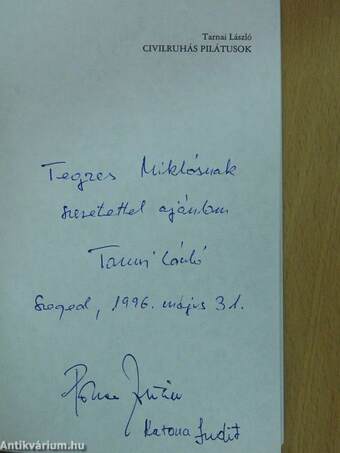 Tarnai László
CIVILRUHÁS PILÁTUSOK
Tegzes Miklósnak
szeretettel ajánlom
Tarnai László
Szeged, 1996. május 31.
Katona Judit
Antikvárium.hu